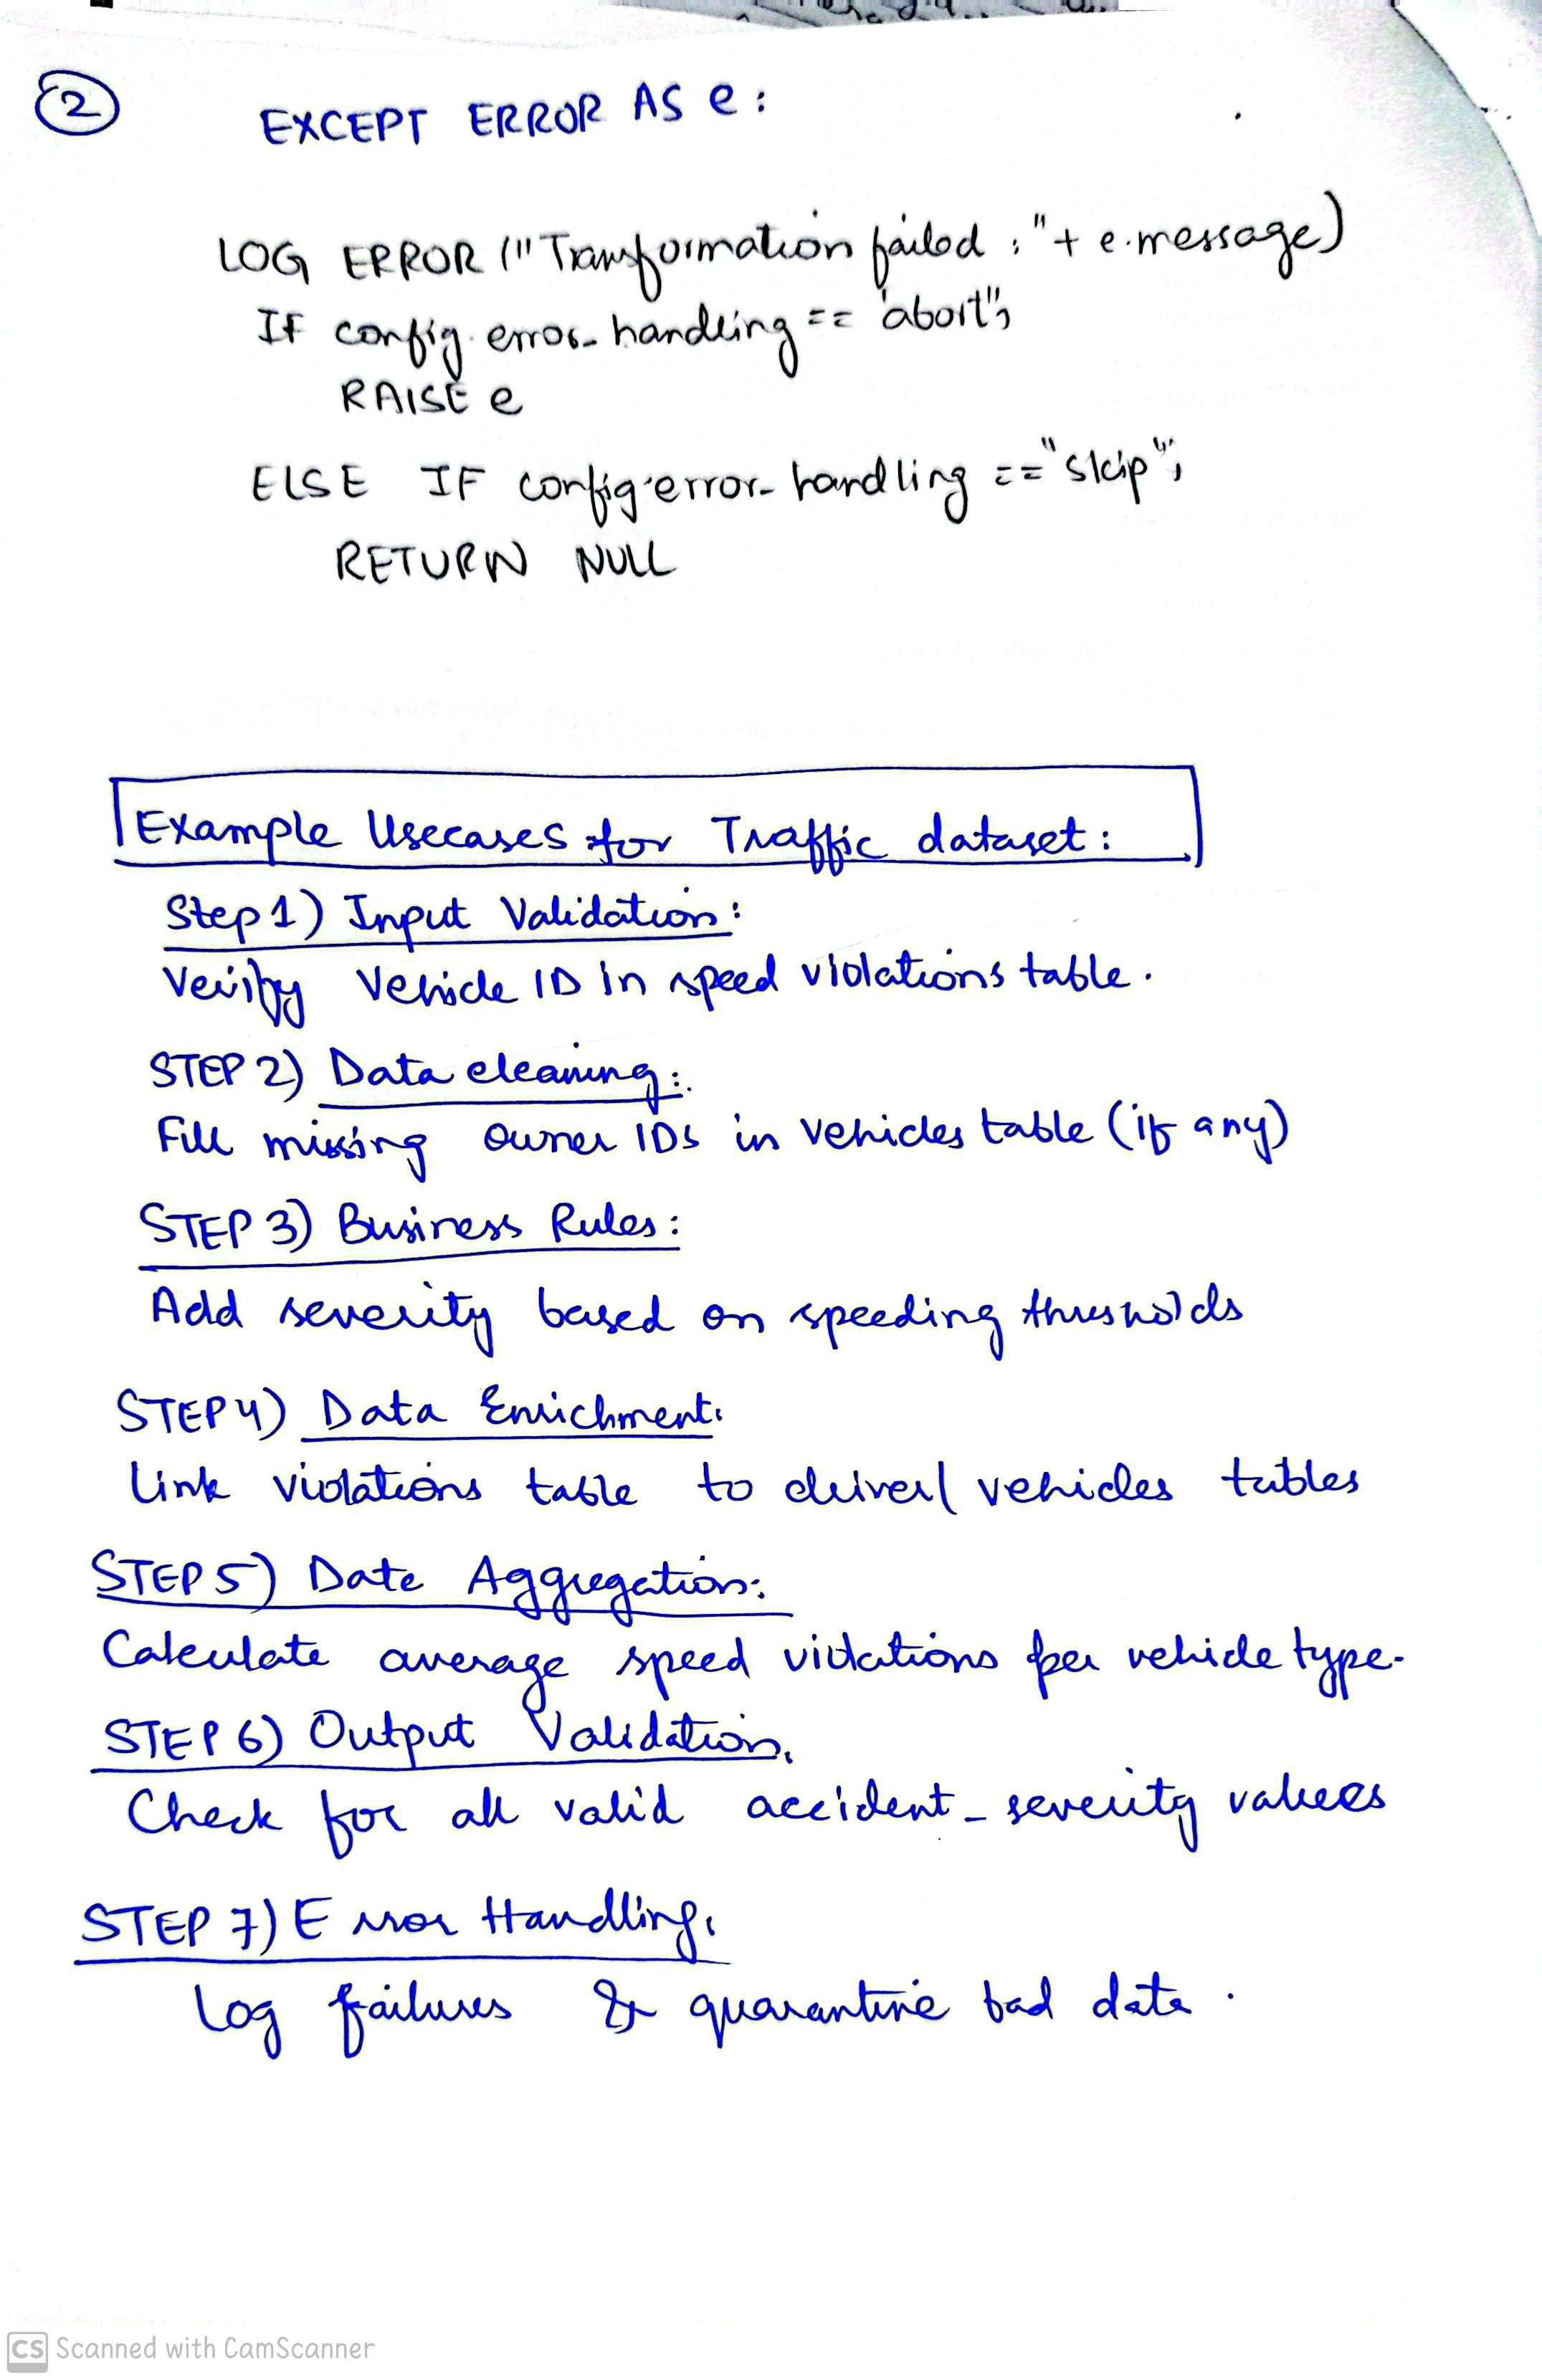 2
EXCEPT ERROR AS e:
LOG ERROR ("Transformation failed : "+ e.message)
IF config.error_handling == "abort":
RAISE e
ELSE IF config.error_handling == "skip":
RETURN NULL
Example Usecases for Traffic dataset:
Step 1) Input Validation:
Verify Vehicle ID in speed violations table.
STEP 2) Data cleaning:
Fill missing owner IDs in vehicles table (if any)
STEP 3) Business Rules:
Add severity based on speeding thresholds
STEP 4) Data Enrichment:
Link violations table to driver/ vehicles tables
STEP 5) Data Aggregation:
Calculate average speed violations per vehicle type.
STEP 6) Output Validation.
Check for all valid accident_severity values
STEP 7) Error Handling:
Log failures & quarantine bad data.
CS Scanned with CamScanner